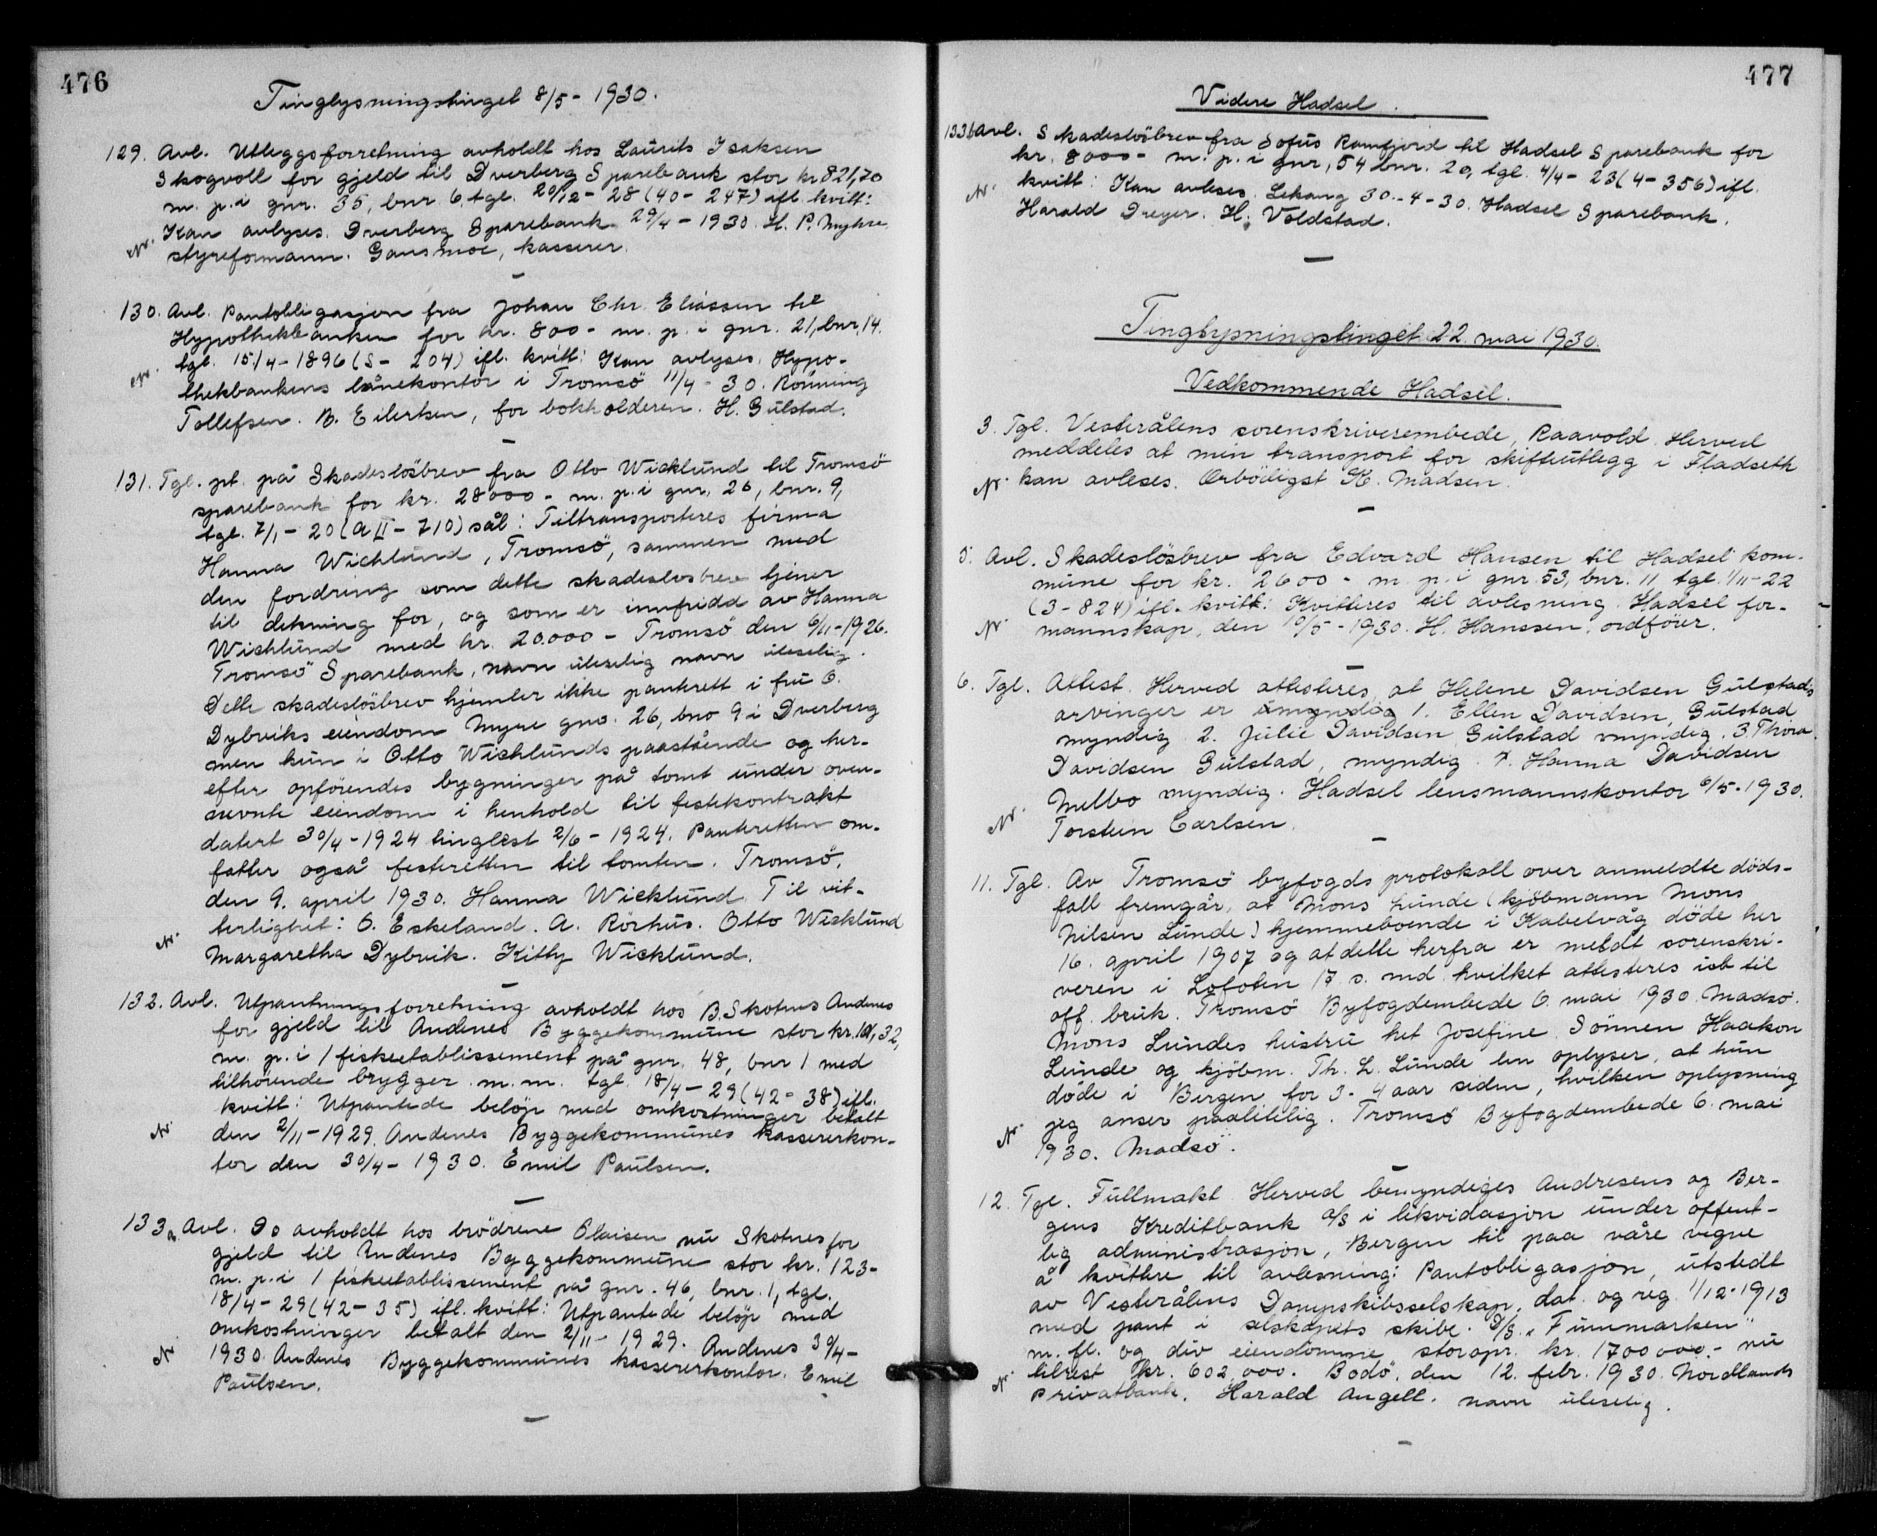 476
Tinglysningstinget 8/5 - 1930.
129. Avl. Utleggsforretning avholdt hos Laurits Isaksen
Skogvoll for gjeld til Dverberg Sparebank stor kr 821,70
m. p. i gnr. 35, bnr 6, tgl. 20/12 - 28 (40 - 247) ifl. kvitt:
Kan avlyses. Dverberg Sparebank 29/4 - 1930. H. P. Myhre
N. styreformann. Gansmoe, kasserer.
130. Avl. Pantobligasjon fra Johan Chr. Eliassen til
Hypothekbanken for kr. 800 - m. p. i gnr. 21, bnr. 14.
tgl. 15/4 - 1896 (S - 204) ifl. kvitt: Kan avlyses. Hypo-
N. thekbankens lånekontor i Tromsö 11/4 - 30. Rönning
Tollefsen. B. Eilertsen, for bokholderen. H. Gulstad.
131. Tgl. pt. på Skadeslösbrev fra Otto Wicklund til Tromsö
sparebank for kr. 28000 - m. p. i gnr. 26, bnr. 9,
tgl. 7/1 - 20 (A II - 710) sål: Tiltransporteres firma
Hanna Wicklund, Tromsö, sammen med
den fordring som dette skadeslosbrev tjener
til dekning for, og som er innfridd av Hanna
Wicklund med kr. 20.000 - Tromsö den 6/11 - 1926.
Tromsö Sparebank, navn uleselig navn uleselig.
Dette skadeslösbrev hjemler ikke pantrett i fru O.
Dybviks eiendom Myre gno. 26, bno 9 i Dverberg
men kun i Otto Wicklunds paastående og her-
efter opförendes bygninger på tomt under oven-
nevnte eiendom i henhold til festekontrakt
datert 30/4 - 1924 tinglest 2/6 - 1924. Panteretten om-
fatter også festeretten til tomten. Tromsö,
den 9. april 1930. Hanna Wicklund Til vit-
terlighet: O. Eskeland. A. Rörhus. Otto Wicklund
N. Margaretha Dybvik. Kitty Wicklund.
132. Avl. Utpantningsforretning avholdt hos B. Skotnes Andenes
for gjeld til Andenes Byggekommune stor kr. 101,32,
m. p. i 1 fisketablissement på gnr. 48, bnr 1 med
tilhörende brygger m. m. tgl. 18/4 - 29 (42 - 38) ifl.
kvitt: Utpantede belöp med omkostninger betalt
N. den 2/11 - 1929. Andenes Byggekommunes kassererkon-
tor den 30/4 - 1930. Emil Paulsen.
133a Avl. Do avholdt hos brödrene Olaisen nu Skotnes for
gjeld til Andenes Byggekommune stor kr. 123 -
m. p. i 1 fisketablissement på gnr. 46, bnr. 1, tgl.
18/4 - 29 (42 - 35) ifl. kvitt: Utpantede belöp med
omkostninger betalt den 2/11 - 1929. Andenes 30/4 -
N 1930. Andenes Byggekommunes kassererkontor. Emil
Paulsen.
477
Videre Hadsel.
133b Avl. Skadeslösbrev fra Sofus Ramfjord til Hadsel Sparebank for
kr. 8000 - m. p. i gnr. 54 bnr. 20, tgl. 4/4 - 23 (4 - 356) ifl.
N. kvitt: Kan avleses. Lekang 30. - 4 - 30. Hadsel Sparebank.
Harald Dreyer. H. Voldstad.
Tinglysningstinget 22. mai 1930.
Vedkommende Hadsel.
3. Tgl. Vesterålens sorenskriverembede, Raavold Herved
meddeles at min transport for skifteutlegg i Fladseth
N. kan avleses. Ærbödigst K. Madsen.
5. Avl. Skadeslösbrev fra Edvard Hansen til Hadsel kom-
mune for kr. 2600 - m. p. i gnr. 53, bnr. 11 tgl. 1/11 - 22
(3 - 824) ifl. kvitt: Kvitteres til avlesning. Hadsel for-
N. mannskap, den 10/5 - 1930. H. Hanssen, ordförer.
6. Tgl. Attest. Herved attesteres, at Helene Davidsen Gulstads
arvinger er umyndig 1. Ellen Davidsen, Gulstad
myndig 2. Julie Davidsen Gulstad myndig. 3. Thora
Davidsen Gulstad, myndig. 4. Hanna Davidsen
N. Melbo myndig. Hadsel lensmannskontor 6/5 - 1930.
Torstein Carlsen.
11. Tgl. Av Tromsö byfogds protokoll over anmeldte döds-
fall fremgår, at Mons Lunde (kjöbmann Mons
Nilsen Lunde) hjemmeboende i Kabelvåg döde her
16. april 1907 og at dette herfra er meldt sorenskri-
veren i Lofoten 17 s. md. hvilket attesteres til
off. bruk. Tromsö Byfogdembede 6. mai 1930. Madsö.
Mons Lundes hustru het Josefine. Sönnen Haakon
Lunde og kjöbm. Th. L. Lunde her oplyser, at hun
döde i Bergen for 3 - 4 aar siden, hvilken oplysning
N. jeg anser paalitelig. Tromsö Byfogdembede 6. mai
1930. Madsö.
12. Tgl. Fullmakt Herved bemyndiges Andresens og Ber-
gens Kreditbank A/S i likvidasjon under offent-
lig administrasjon, Bergen til paa våre vegne
å kvittere til avlesning: Pantobligasjon, utstedt
av Vesterålens Dampskibsselskap, dat. og reg. 1/12 - 1913
med pant i selskapets skibe. D/S. "Finnmarken"
m. fl. og div eiendomme, stor opr. kr. 1700000 - nu
N. tilrest kr. 602.000. Bodö, den 12. febr. 1930. Nordlands
Privatbank. Harald Angell. navn uleselig.